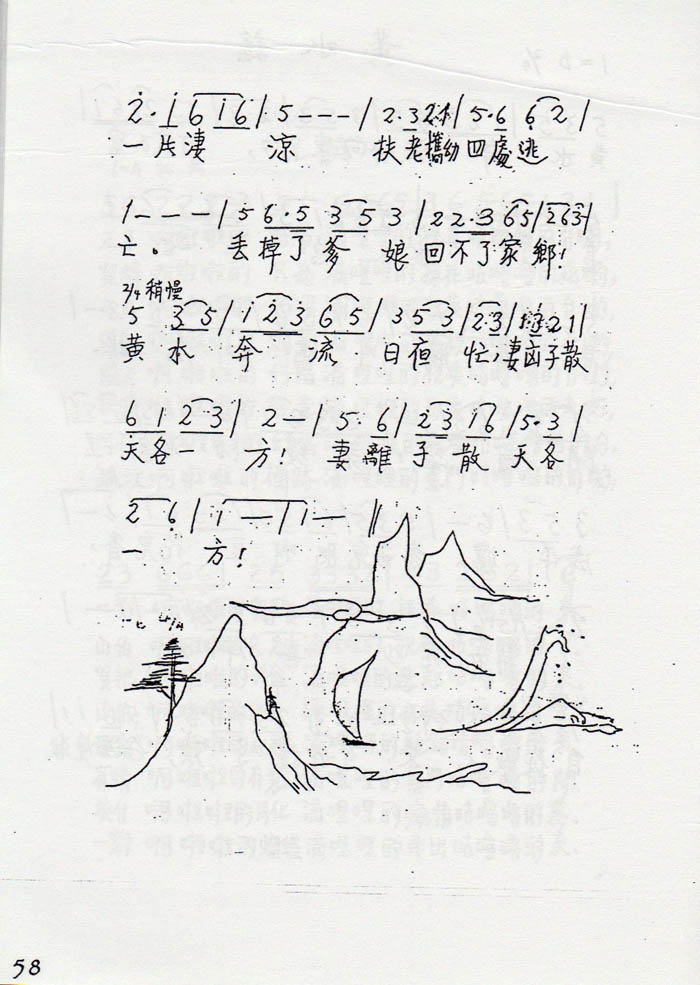 2· i 6 i 6 | 5 - - - | 2·3 2 1 | 5·6 6 2 |
一片淒 涼 扶老攜幼四處逃
1 - - - | 5 6·5 3 5 3 | 2 2·3 6 5 | 2 6 3 |
亡。 丢掉了爹 娘回不了家鄉!
2/4 稍慢
5 3 5 | 1 2 3 | 6 5 | 3 5 3 | 2·3 | 2 1 |
黄水 奔 流 日夜 忙,凄 子散
6 1 2 3 | 2 - | 5· 6 | 2 3 1 6 | 5·3 |
天各一 方! 妻離子散 天各
2 6 | i - | i - ‖
一 方!
58